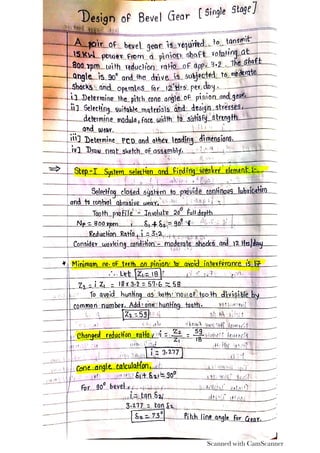 Design of Bevel Gear [Single stage]
A pair of bevel gear is required to transmit
15 KW power from a pinion shaft rotating at
800 rpm with reduction ratio of appx 3.2. The shaft
angle is 90° and the drive is subjected to moderate
shocks and operates for 12 Hrs. per day.
i] Determine the pitch cone angle of pinion and gear.
ii] Selecting suitable materials and design stresses,
determine module, face width to satisfy strength
and wear.
iii] Determine PCD and other leading dimensions.
iv] Draw neat sketch of assembly.
⇒ Step-I System selection and finding weaker element :-
Selecting closed system to provide continous lubrication
and to control abrasive wear.
Tooth profile - Involute 20° full depth
Np = 800 rpm ; δ1 + δ2 = 90°
Reduction Ratio, i = 3.2
Consider working condition - moderate shocks and 12 Hrs/day
* Minimum no. of teeth on pinion to avoid interference is 17
∴ Let Z1 = 18
Z2 = i Z1 = 18 x 3.2 = 57.6 = 58
To avoid hunting as both no. of tooth divisible by
common number. Add one hunting tooth.
Z2 = 59
Changed reduction ratio, i = Z2/Z1 = 59/18
i = 3.277
Cone angle calculation,
δ1 + δ2 = 90°
For 90° bevel,
i = tan δ2
3.277 = tan δ2
δ2 = 73° Pitch line angle for Gear.
Scanned with CamScanner